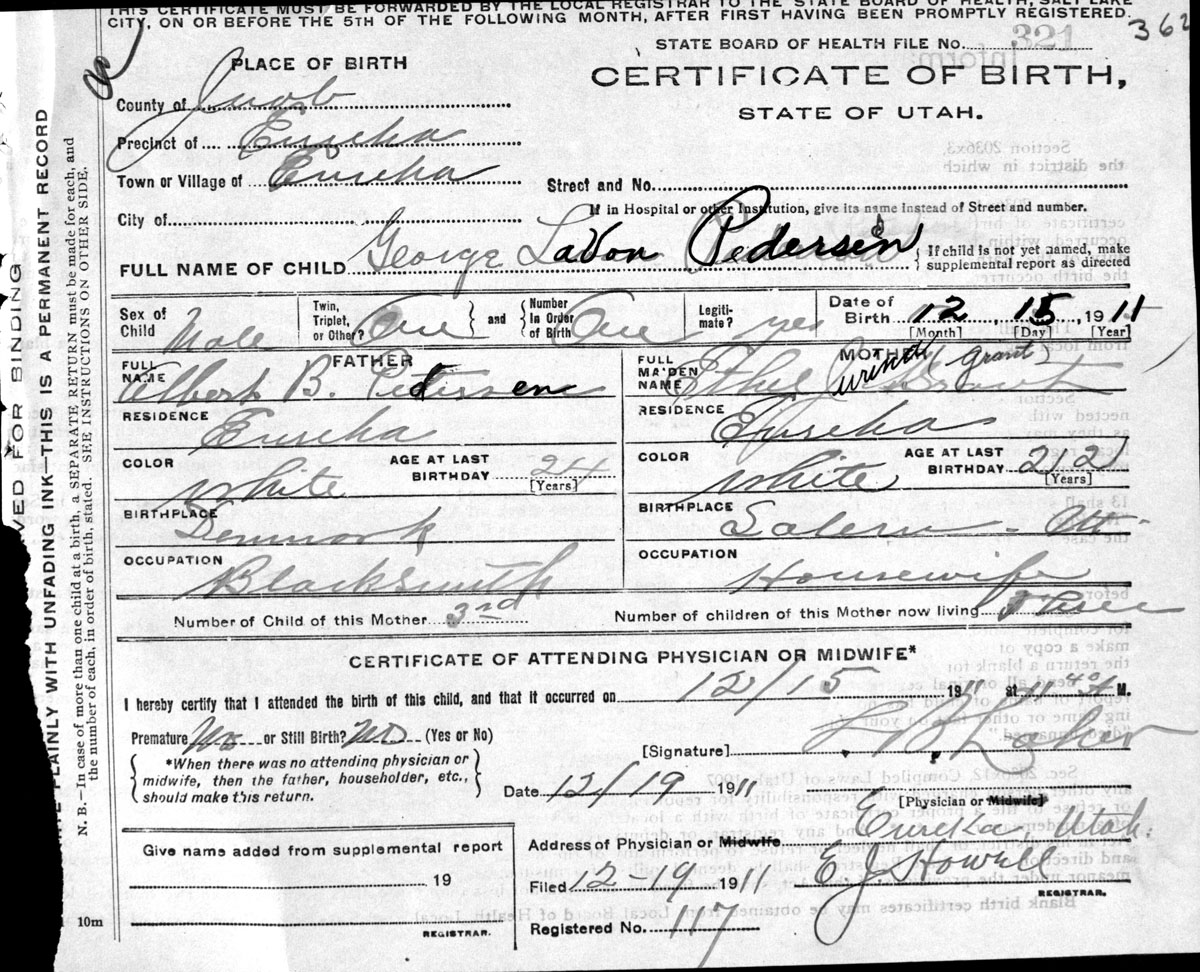 THIS CERTIFICATE MUST BE FORWARDED BY THE LOCAL REGISTRAR TO THE STATE BOARD OF HEALTH, SALT LAKE
CITY, ON OR BEFORE THE 5TH OF THE FOLLOWING MONTH, AFTER FIRST HAVING BEEN PROMPTLY REGISTERED.
362
STATE BOARD OF HEALTH FILE No. 321
PLACE OF BIRTH
CERTIFICATE OF BIRTH,
STATE OF UTAH.
County of Juab
Precinct of Eureka
Town or Village of Eureka
Street and No.
If in Hospital or other Institution, give its name instead of Street and number.
City of
FULL NAME OF CHILD George LaVon Pedersen { If child is not yet named, make supplemental report as directed
Sex of Child Male Twin, Triplet, or Other? One } and { Number In Order of Birth One Legiti-mate? yes Date of Birth 12, 15, 1911
[Month] [Day] [Year]
FATHER
MOTHER
FULL NAME Albert B. Pedersen
FULL MAIDEN NAME Ethel Grant (Grant)
RESIDENCE Eureka
RESIDENCE Eureka
COLOR White AGE AT LAST BIRTHDAY 24 [Years]
COLOR White AGE AT LAST BIRTHDAY 22 [Years]
BIRTHPLACE Denmark
BIRTHPLACE Salem - Ut
OCCUPATION Blacksmith
OCCUPATION Housewife
Number of Child of this Mother 3rd
Number of children of this Mother now living Three
CERTIFICATE OF ATTENDING PHYSICIAN OR MIDWIFE*
I hereby certify that I attended the birth of this child, and that it occurred on 12/15 1911 at 11 40 A M.
Premature No or Still Birth? No (Yes or No)
[Signature]
{ *When there was no attending physician or midwife, then the father, householder, etc., should make this return. }
Date 12/19 1911
[Physician or Midwife]
Address of Physician or Midwife Eureka, Utah.
Give name added from supplemental report
19
REGISTRAR.
Filed 12 19 1911 E J Howell
REGISTRAR.
Registered No. 117
10m
RVED FOR BINDING
PLAINLY WITH UNFADING INK-THIS IS A PERMANENT RECORD
N. B.—In case of more than one child at a birth, a SEPARATE RETURN must be made for each, and
the number of each, in order of birth, stated. SEE INSTRUCTIONS ON OTHER SIDE.